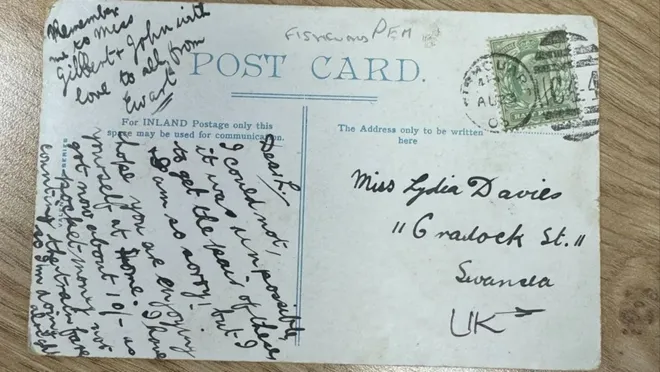 Remember
me to Miss
Gilbert & John with
love to all from
Ewart
FISHGUARD PEM
POST CARD.
For INLAND Postage only this
space may be used for communication.
The Address only to be written
here
Dear L
I could not,
it was impossible,
to get the pair of these
I am so sorry! but I
hope you are enjoying
yourself at home. I have
got now about 10/- as
pocket money not
counting the train fare
so I'm doing
alright
Miss Lydia Davies
"Cradock St."
Swansea
UK